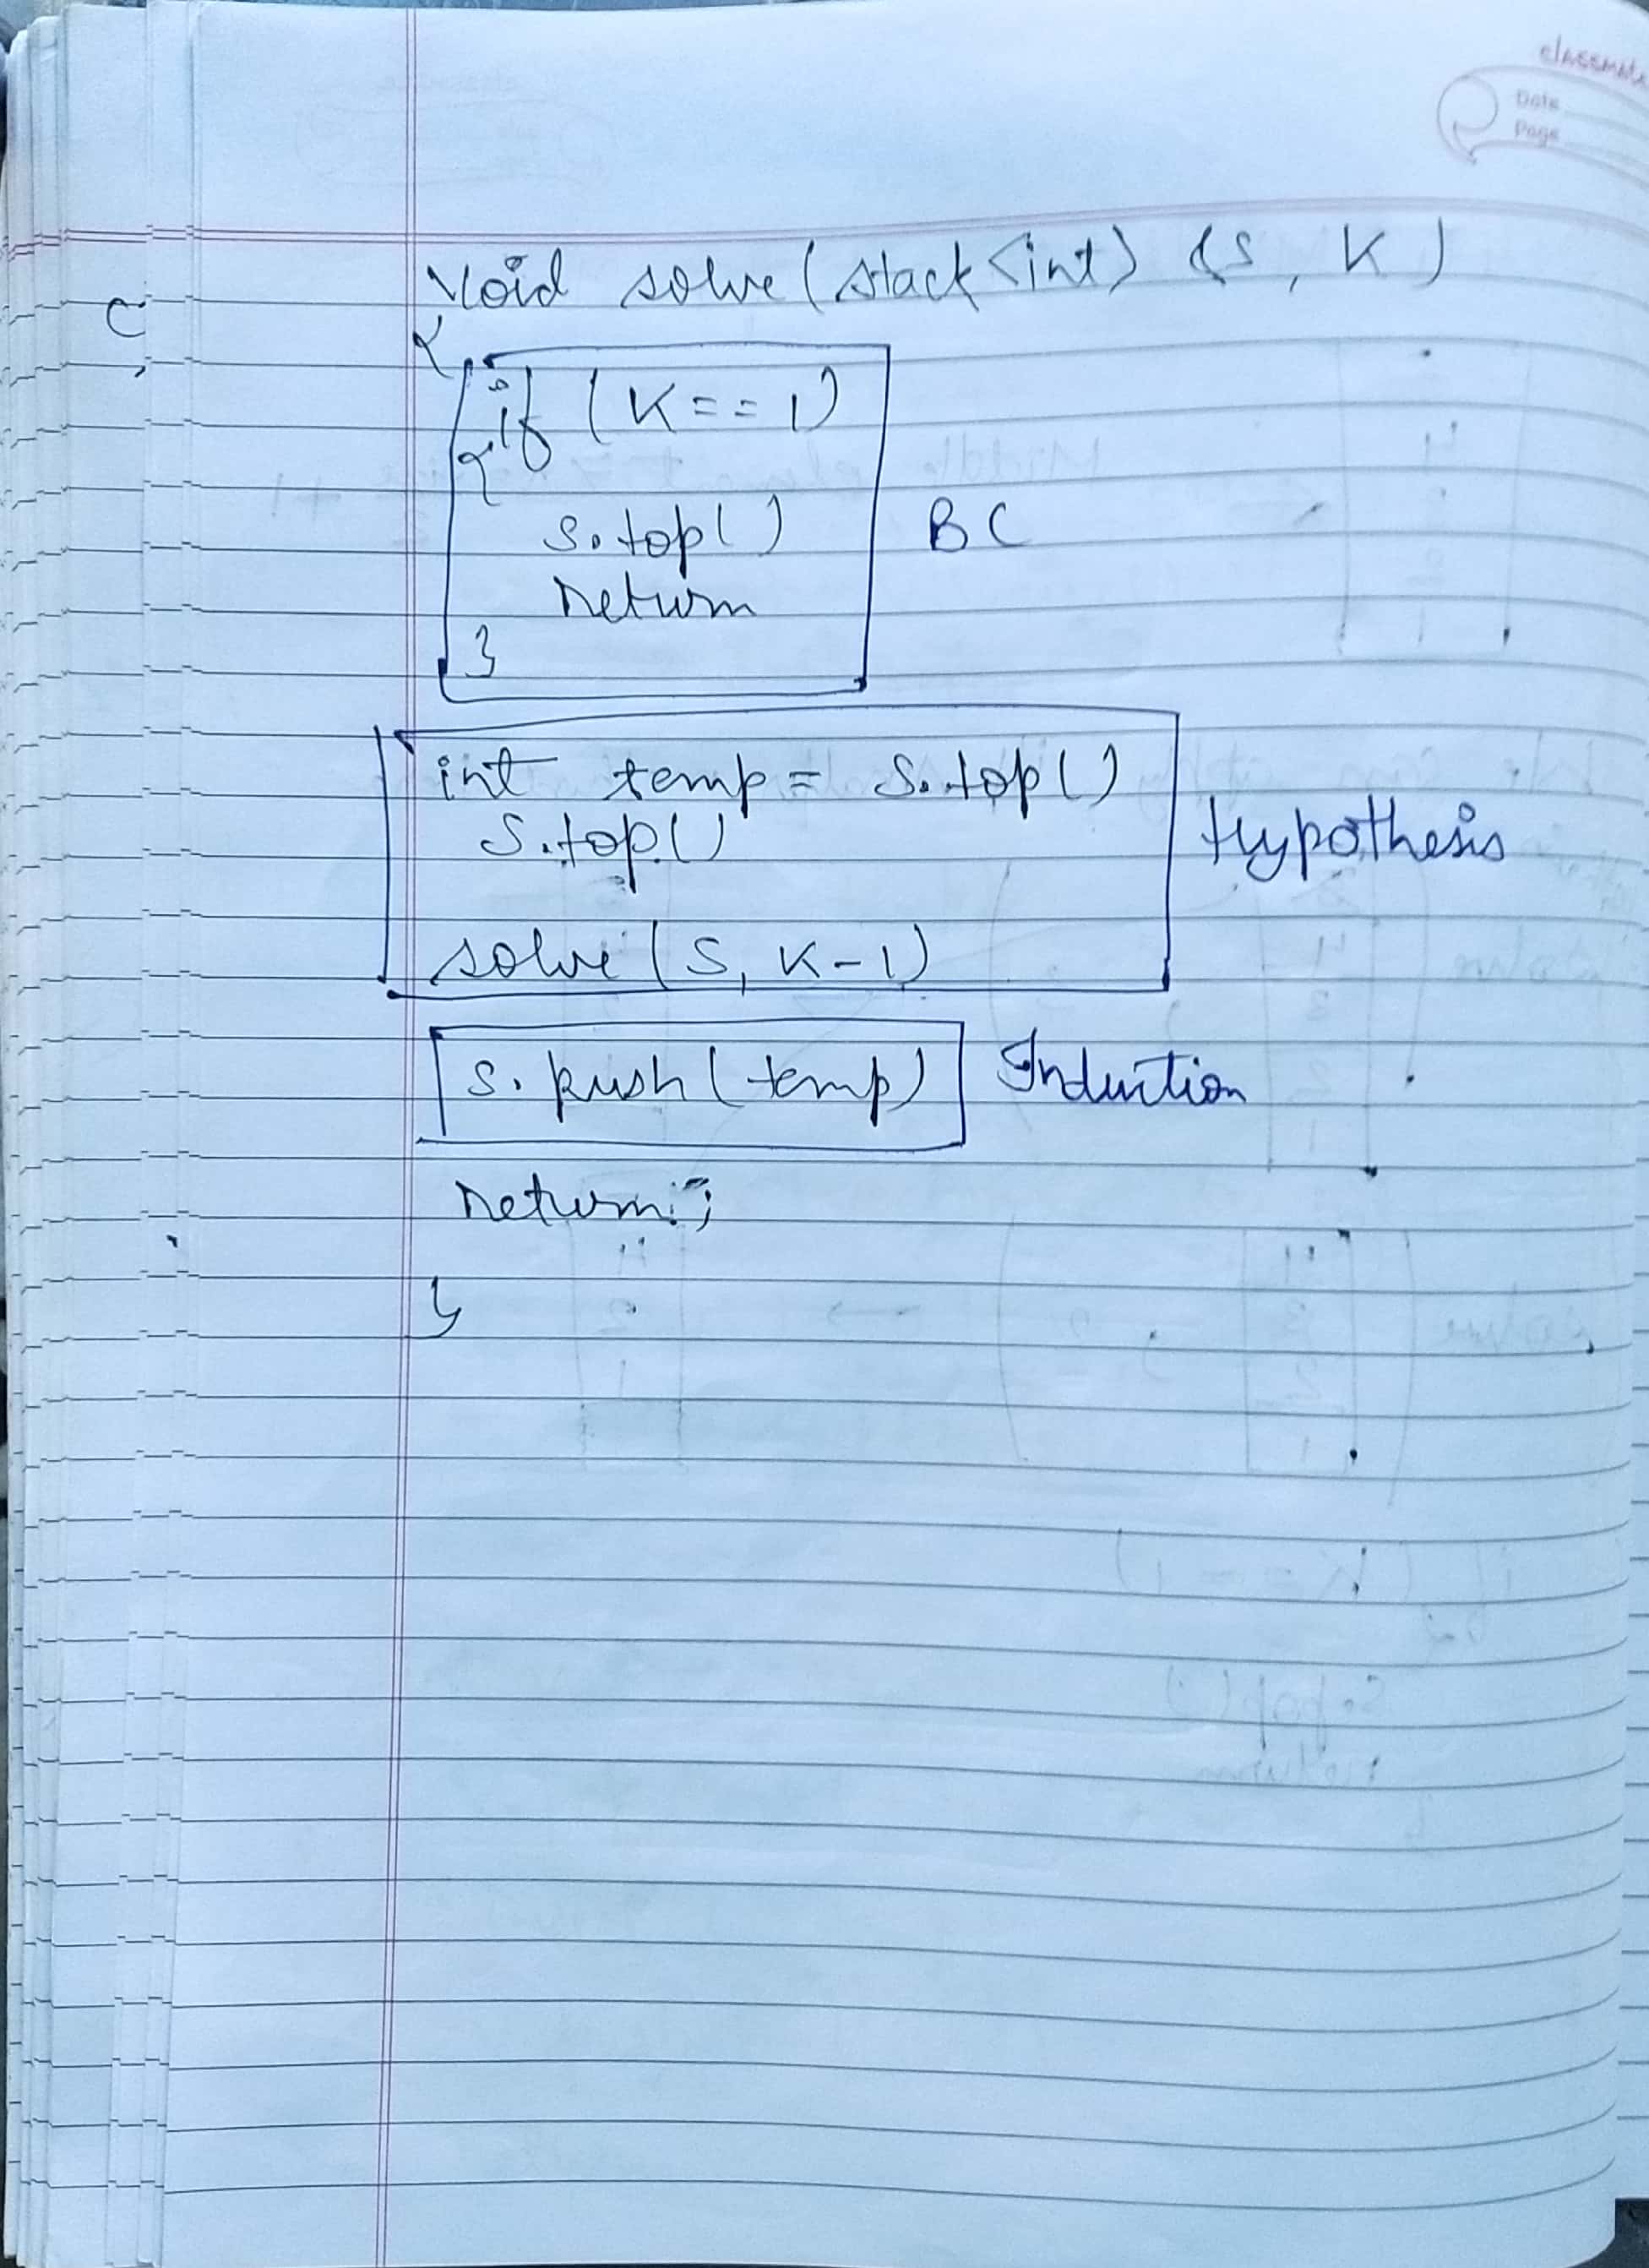 classmate
Date
Page
void solve (stack <int> &s, K)
{
if (K == 1)
{
s.top()
return
}
BC
int temp = s.top()
s.top()
solve (s, K-1)
Hypothesis
s.push(temp)
Induction
return;
}